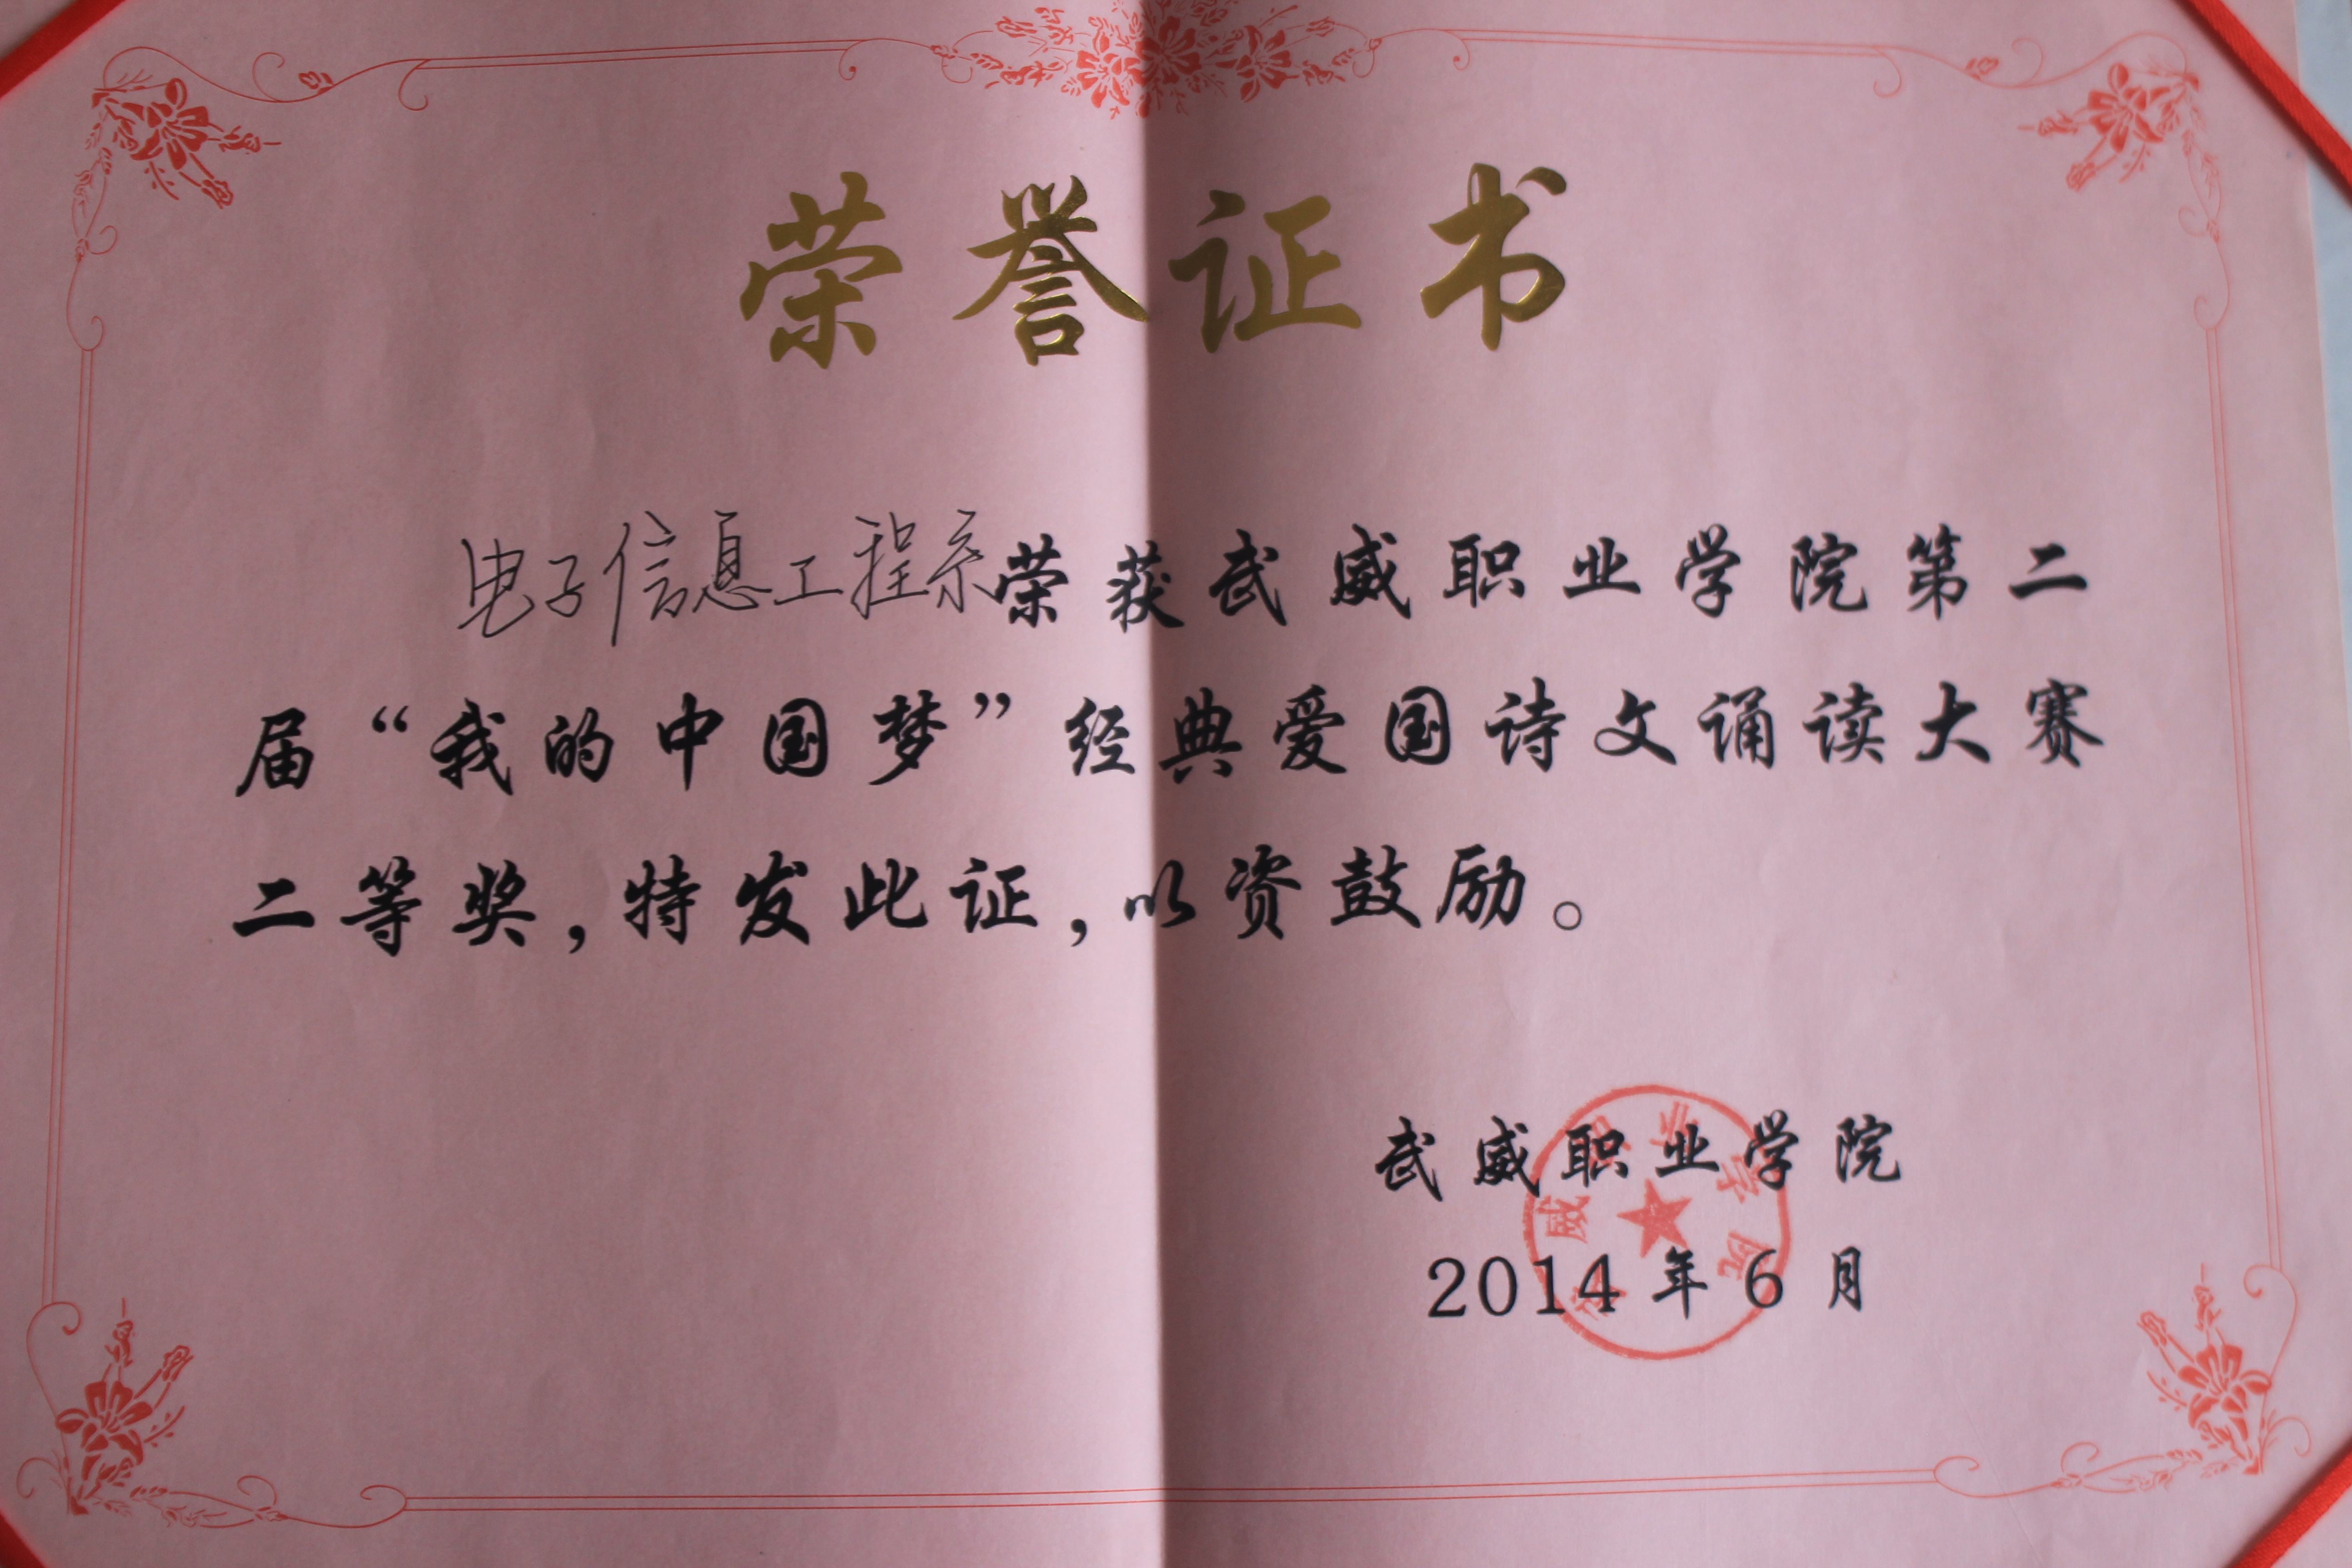 荣誉证书
电子信息工程系荣获武威职业学院第二
届“我的中国梦”经典爱国诗文诵读大赛
二等奖,特发此证,以资鼓励。
武威职业学院
2014年6月
武威职业学院